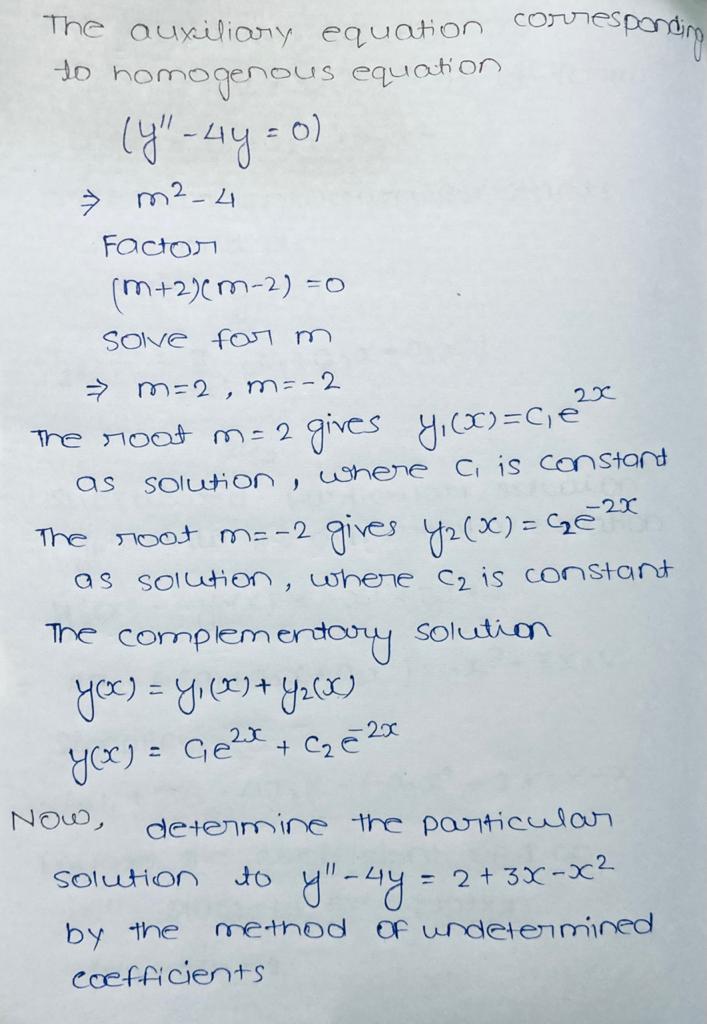 The auxiliary equation corresponding
to homogenous equation
(y'' - 4y = 0)
⇒ m² - 4
Factor
(m+2)(m-2) = 0
Solve for m
⇒ m=2, m=-2
The root m=2 gives y₁(x) = C₁e²ˣ
as solution, where C₁ is constant
The root m=-2 gives y₂(x) = C₂e⁻²ˣ
as solution, where C₂ is constant
The complementary solution
y(x) = y₁(x) + y₂(x)
y(x) = C₁e²ˣ + C₂e⁻²ˣ
Now, determine the particular
solution to y'' - 4y = 2 + 3x - x²
by the method of undetermined
coefficients